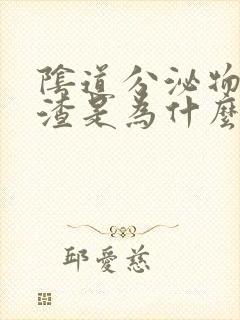 陰道分泌物
渣是為什麼
邱愛慈